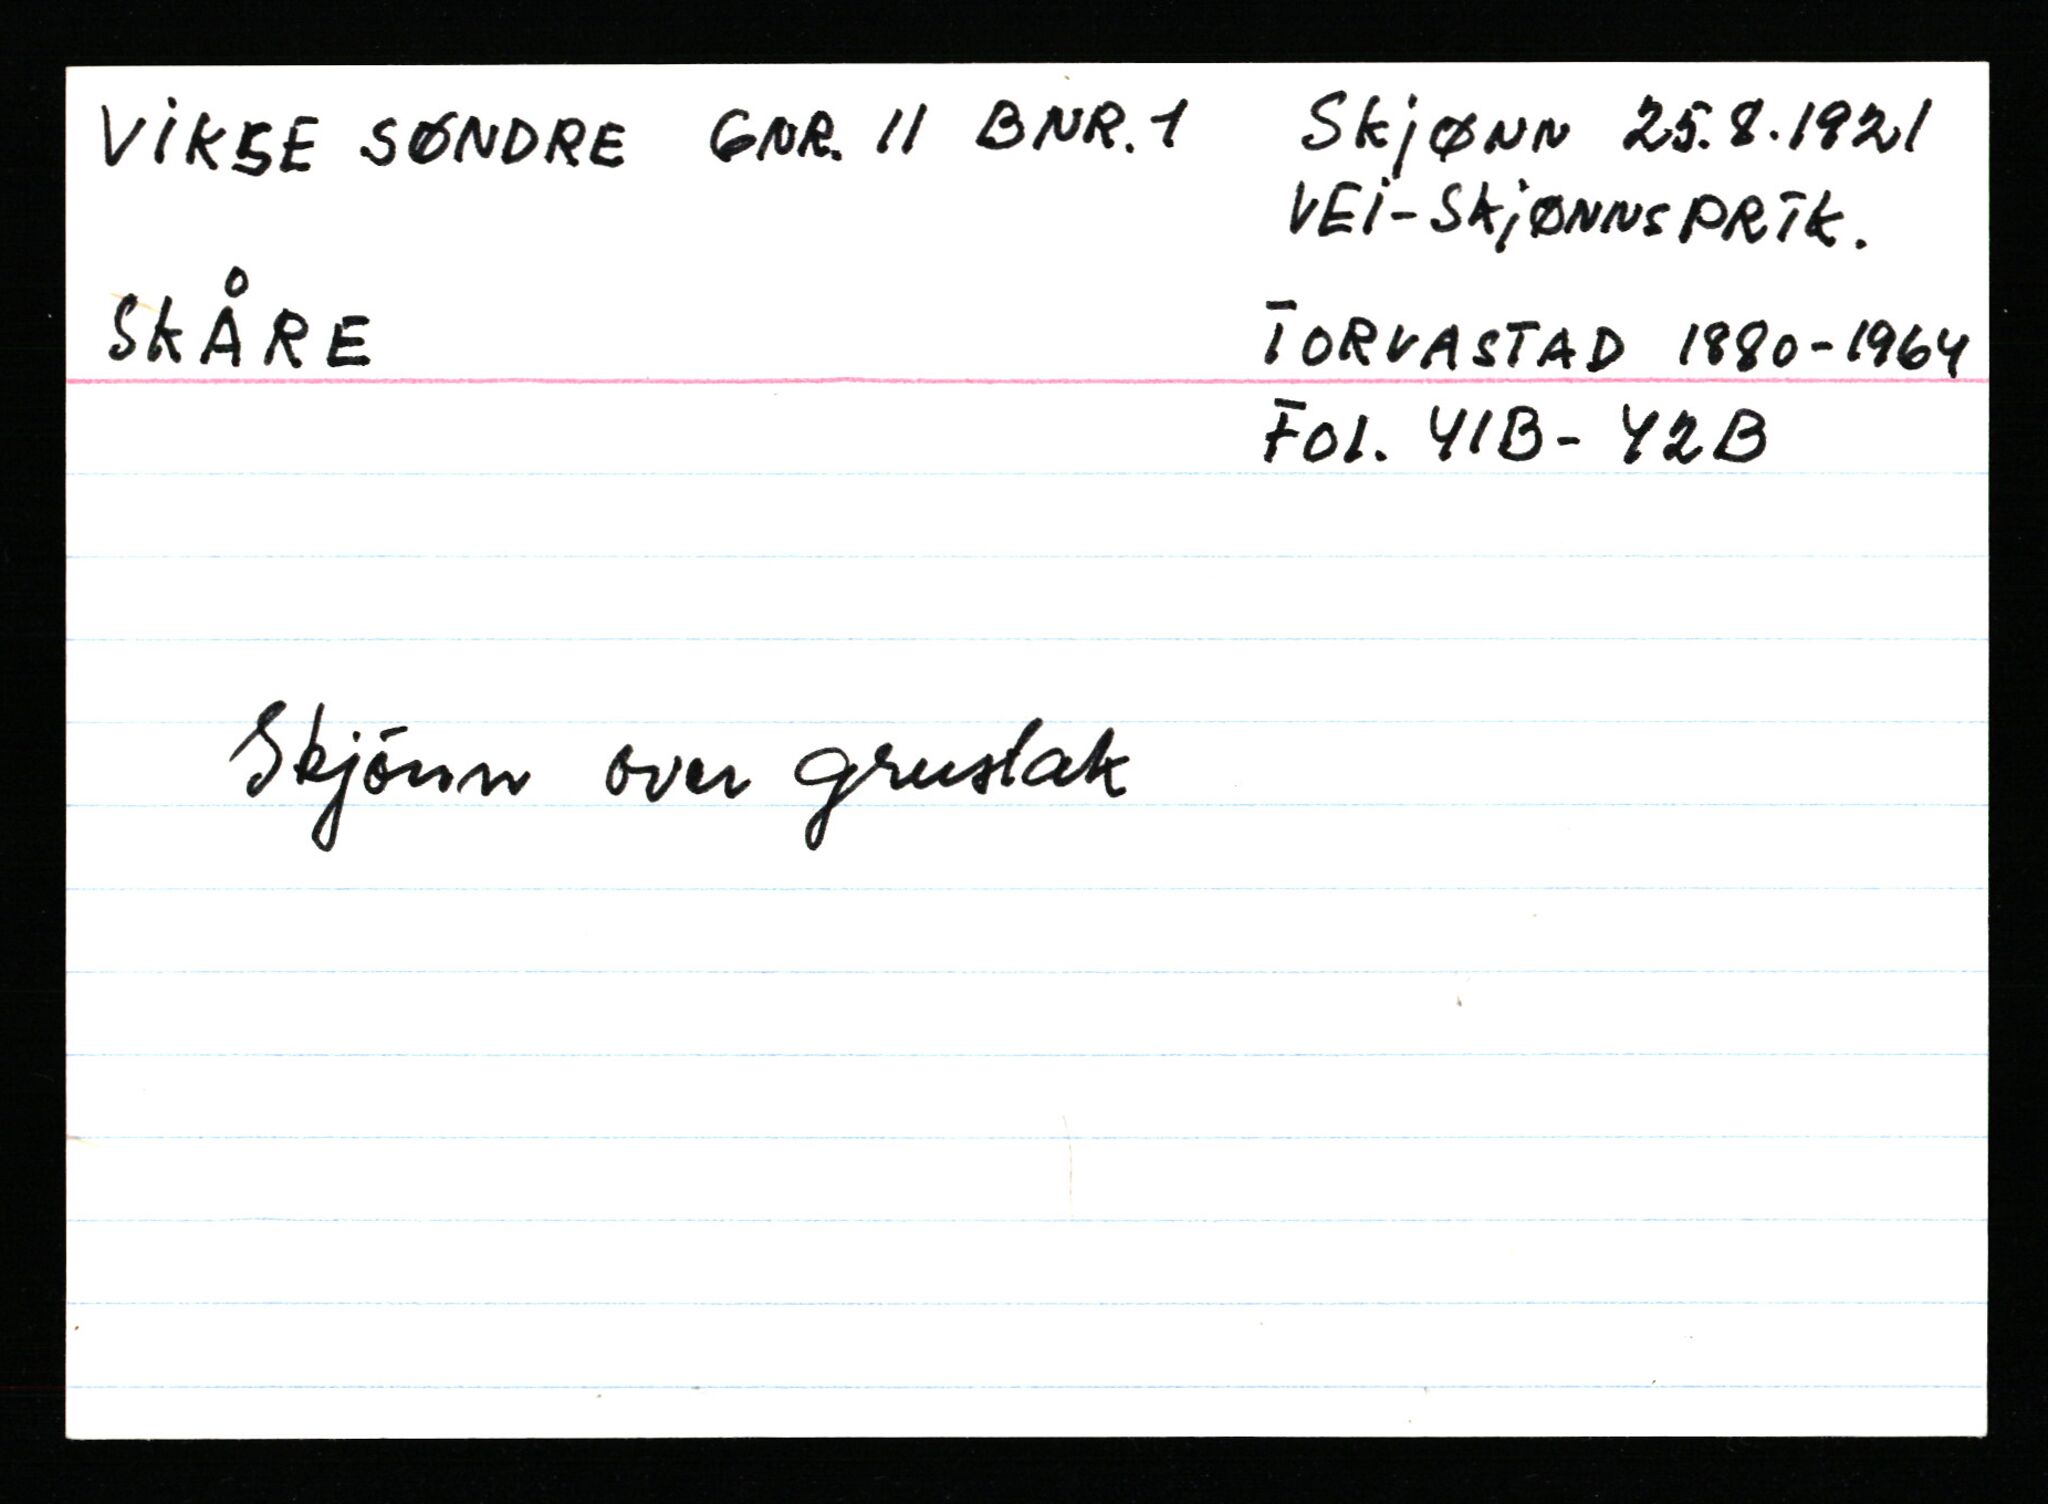 VIKSE SØNDRE GNR. 11 BNR. 1 Skjønn 25.8.1921
VEI-SKJØNNSPRTK.
SKÅRE TORVASTAD 1880-1964
Fol. 41B - 42B
Skjönn over grustak